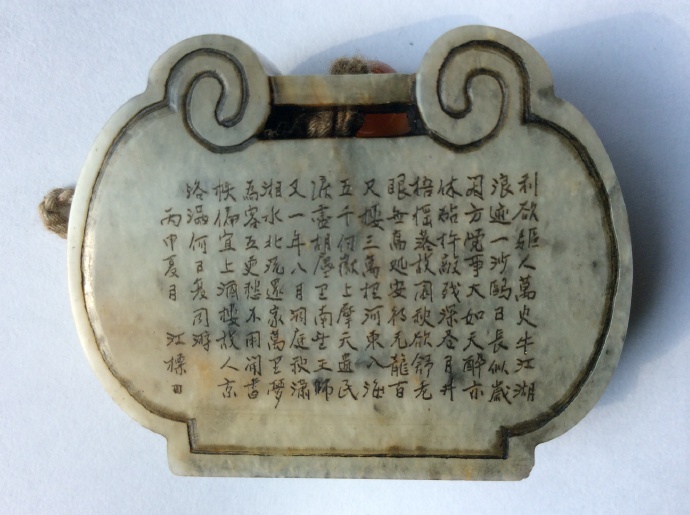 利欲驅人萬火牛江湖
浪迹一沙鷗日長似歲
閑方覺事大如天醉亦
休砧杵敲殘深巷月井
梧摇落故園秋欲舒老
眼無高処安得元龍百
尺樓三萬裡河東入海
五千仞嶽上摩天遺民
淚盡胡塵里南望王師
又一年八月洞庭秋瀟
湘水北流還家萬里夢
為客五更愁不用開書
帙偏宜上酒樓故人京
洛滿何日复同游
丙申夏月 江標